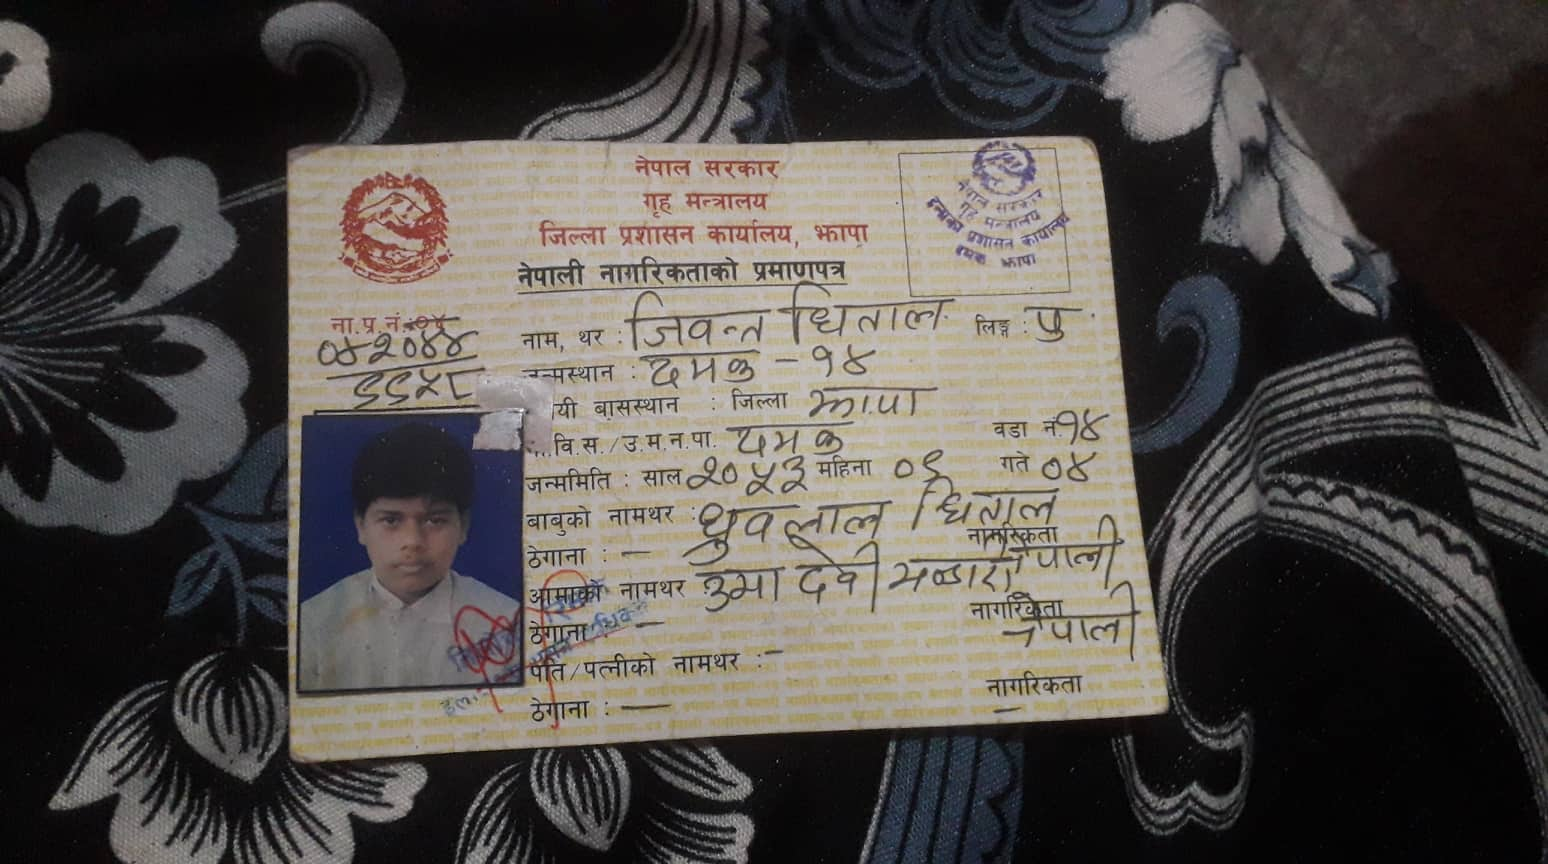 नेपाल सरकार
गृह मन्त्रालय
जिल्ला प्रशासन कार्यालय, झापा
नेपाली नागरिकताको प्रमाणपत्र
नेपाल सरकार
गृह मन्त्रालय
इलाका प्रशासन कार्यालय
दमक झापा
ना.प्र.नं.
नाम, थर : जिवन्त धिताल लिङ्ग : पु.
जन्मस्थान : दमक - १४
यी बासस्थान : जिल्ला झापा
...वि.स./उ.म.न.पा. दमक वडा नं. १४
जन्ममिति : साल २०५३ महिना ०६ गते ०४
बाबुको नामथर : ध्रुवलाल धिताल
ठेगाना : — नागरिकता नेपाली
आमाको नामथर उमा देवी भण्डारी
ठेगाना : — नागरिकता नेपाली
पति/पत्नीको नामथर : -
ठेगाना : — नागरिकता —